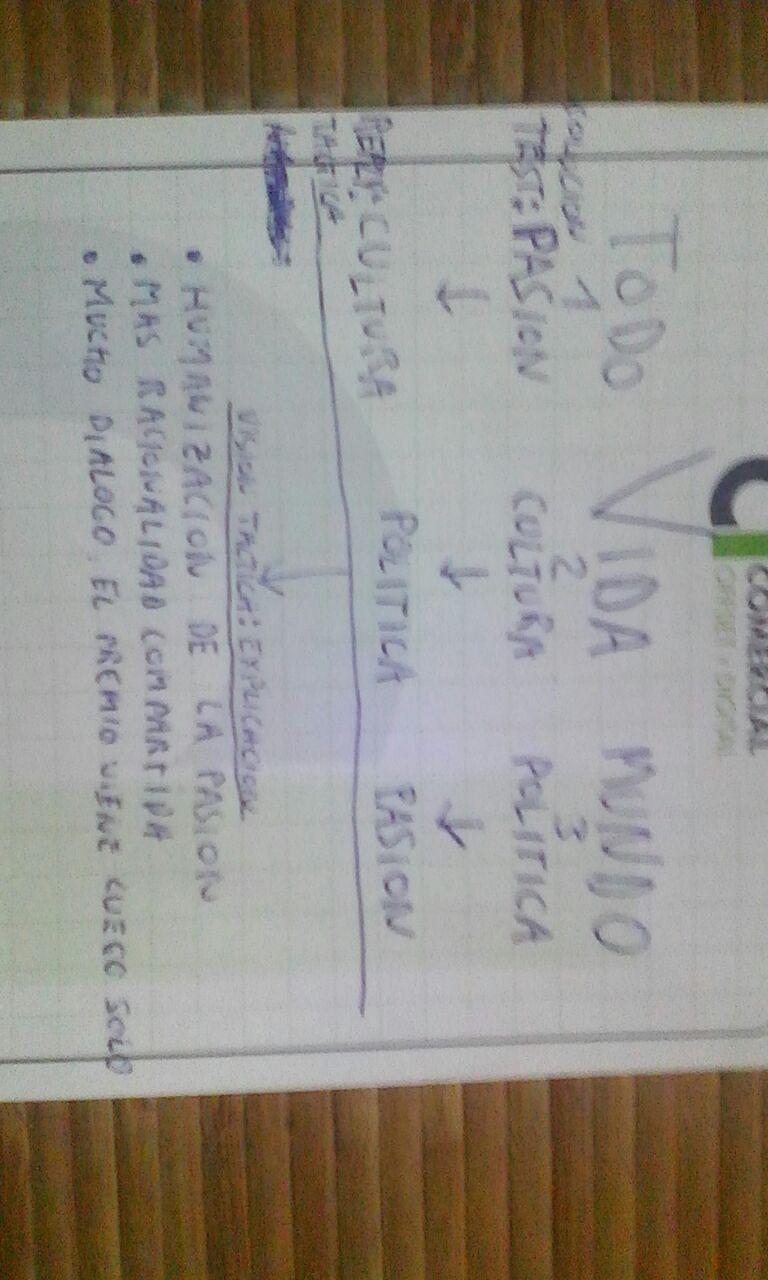 COMERCIAL
OFFSET · DIGITAL
TODO VIDA MUNDO
SOLUCION 1 2 3
TEST: PASION CULTURA POLITICA
↓ ↓ ↓
CULTURA POLITICA PASION
TACTICA
VISION TACTICA: EXPLICACION
• HUMANIZACION DE LA PASION
• MAS RACIONALIDAD COMPARTIDA
• MUCHO DIALOGO, EL PREMIO VIENE LUEGO SOLO